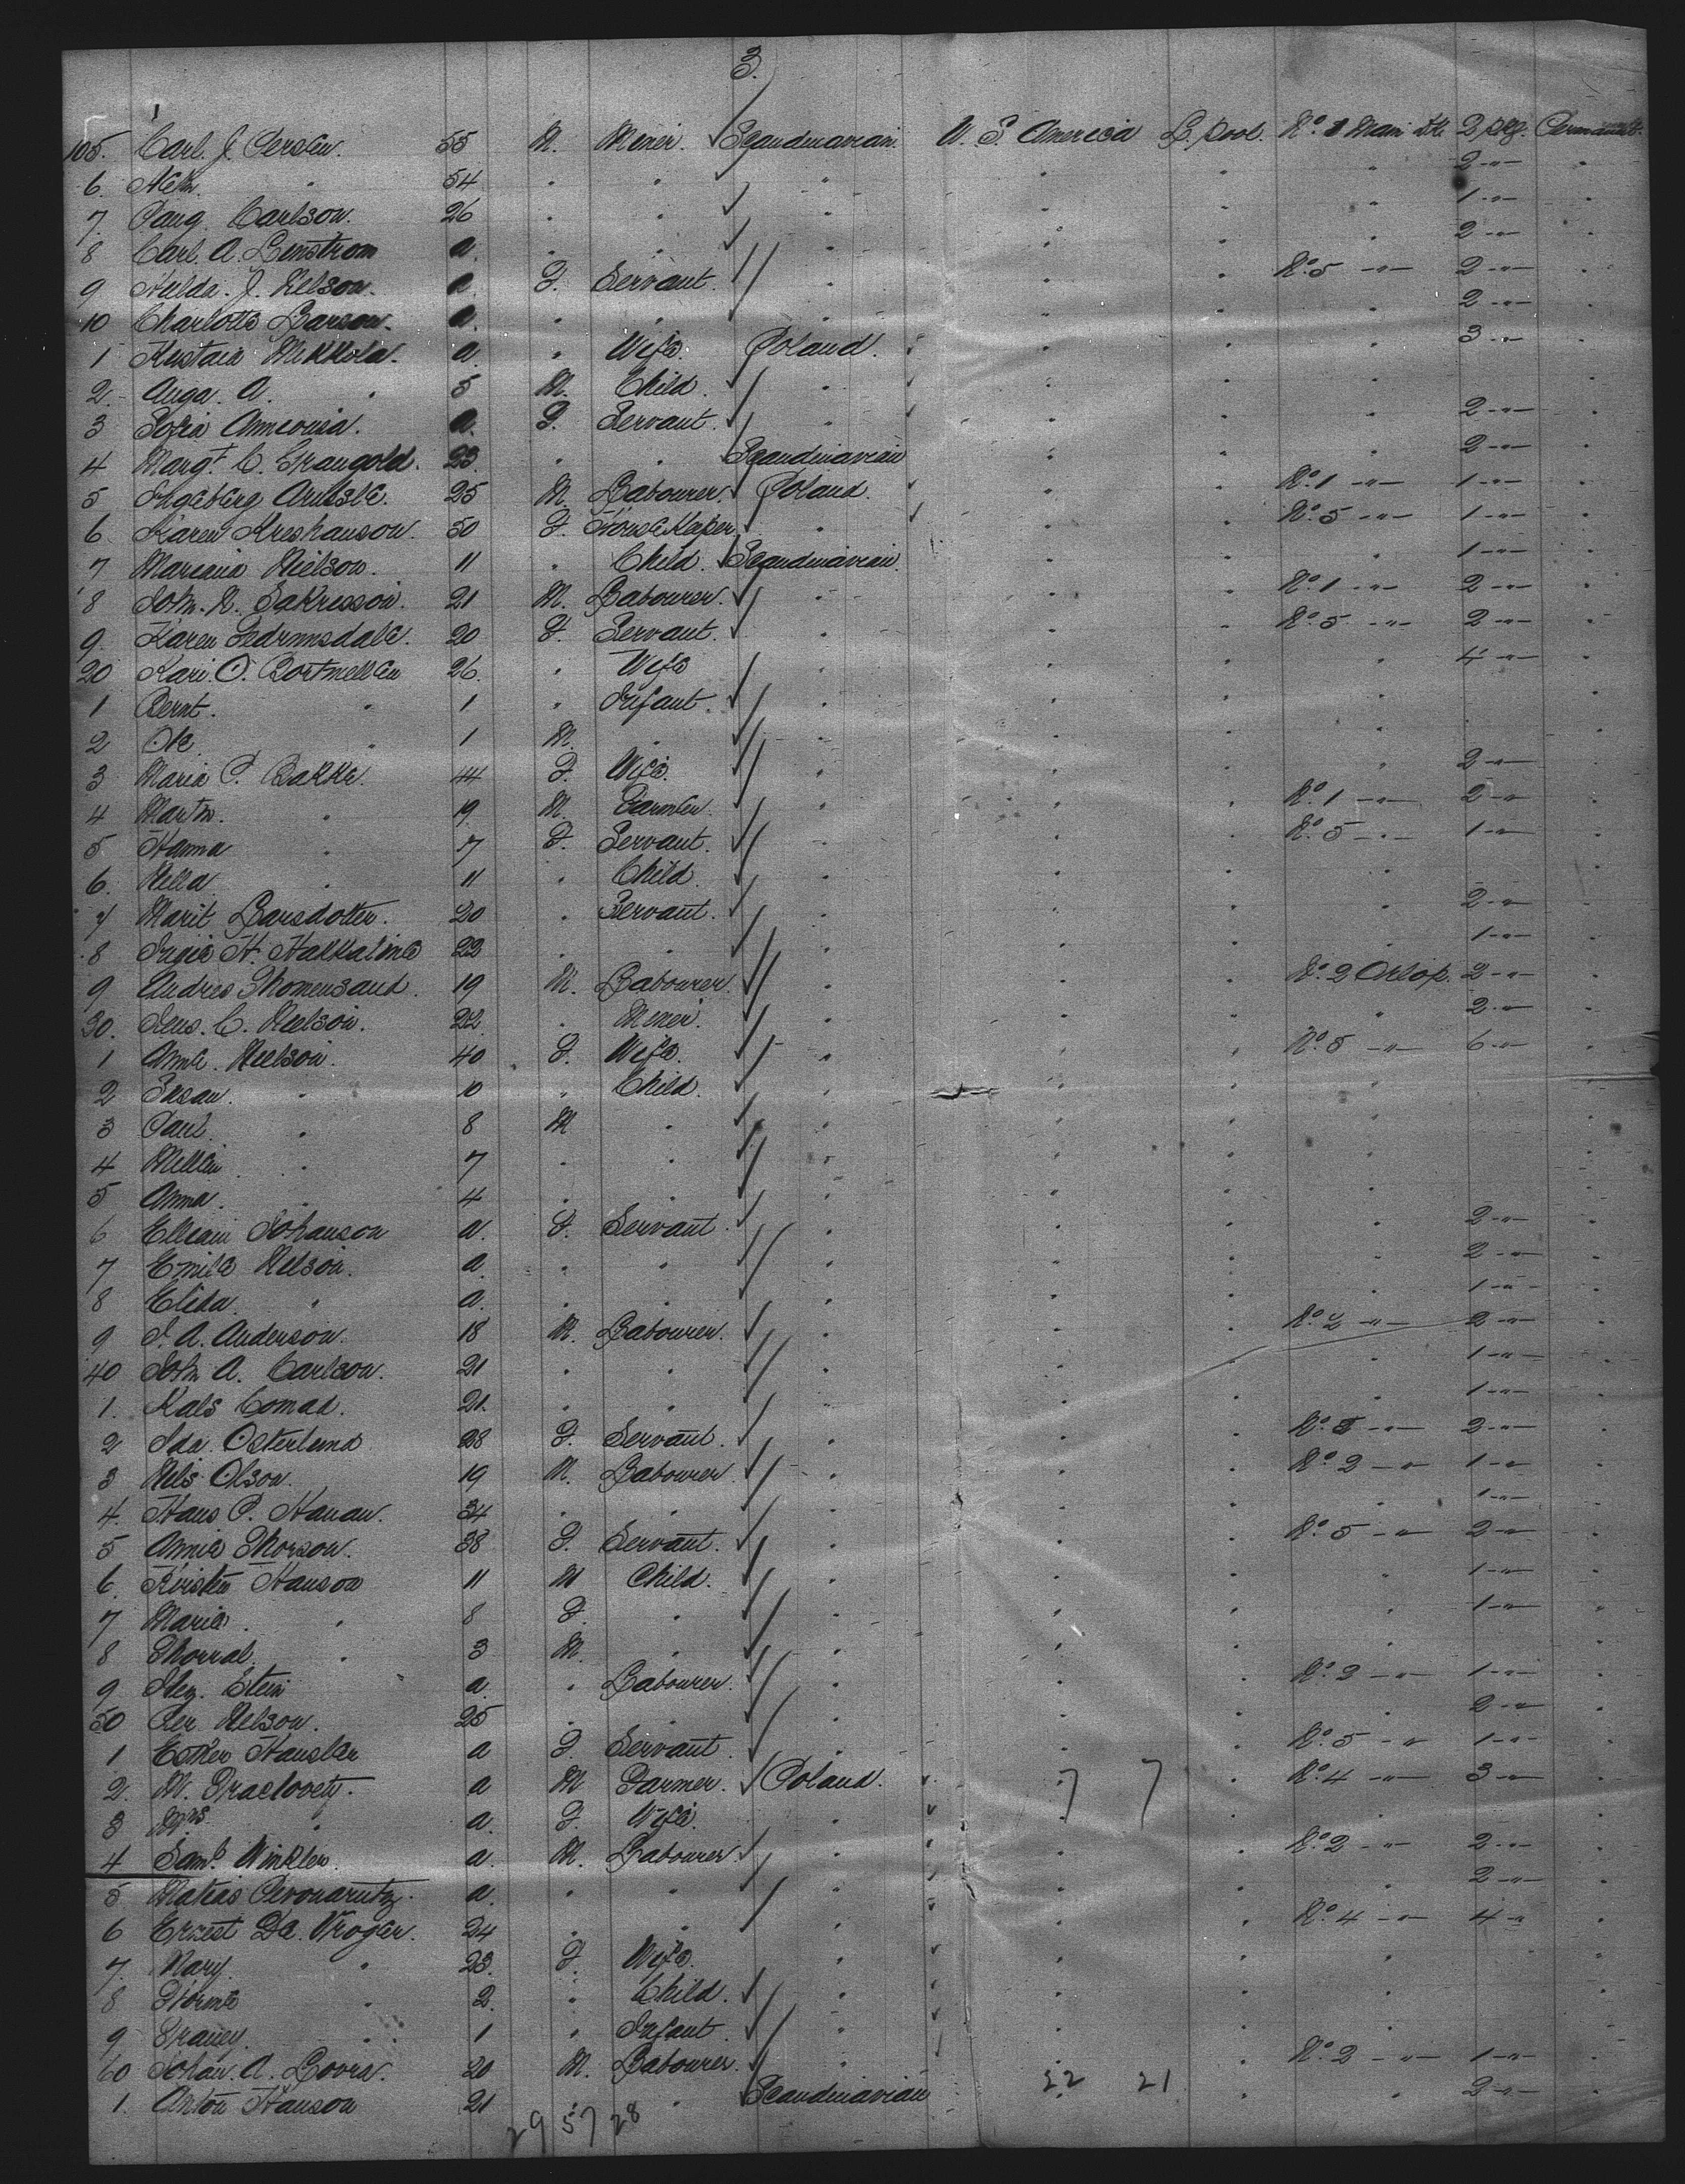 3.
105. Carl. J. Persen. 55 M. Miner. Scandinavian. U. S. America L. pool. No. 1 Main Dk 2 pkg. Permanent.
6 " 54 " " " " " " 2 -"- "
7. Carlson. 26 " " " " " " 1 -"- "
8 Carl. A. Lenstrom a. " " " " " " 2 -"- "
9 Hulda. J. Nelson. a F. Servant. " " " No. 5 -"- 2 -"- "
10 Charlotte Larson. a. " " " " " " 2 -"- "
1 Mikkola. a " Wife. Poland. " " " 3 -"- "
2. A. " 5 M. Child. " " " " "
3 Sofia a. F. Servant. " " " " 2 -"- "
4 Margt. C. Grangold. 23. " " Scandinavian " " " 2 -"- "
5 25 M Labourer. Poland. " " No. 1 -"- 1 -"- "
6 Karen 50 F. House Keeper " " " No. 5 -"- 1 -"- "
7 Nielson. 11 " Child. Scandinavian. " " " 1 -"- "
8 John. 21 M. Labourer. " " " No. 1 -"- 2 -"- "
9. Karen 20 F. Servant. " " " No. 5 -"- 2 -"- "
20 Kari. O. 26. " Wife " " " " 4 -"- "
1 Bernt. " 1 " Infant. " " " " "
2 Ole. " 1 M. " " " " " "
3 Maria P. Bakke. 44 F. Wife. " " " " 2 -"- "
4 Martin. " 19. M. Farmer. " " " No. 1 -"- 2 -"- "
5 Hanna " 7 F. Servant. " " " No. 5 -"- 1 -"- "
6. Nella " 11 " Child. " " " " "
7 Marit Larsdotter. 20 " Servant. " " " " 2 -"- "
8 H. 22 " " " " " " 1 -"- "
9 Andres Thomensand. 19 M. Labourer. " " " No. 2 Orlop. 2 -"- "
30. Jens. C. Neelson. 22. " Miner. " " " " 2 -"- "
1 Anne. Neelson. 40 F. Wife. " " " No. 5 -"- 6 -"- "
2 Susan. " 10 " Child. " " " " "
3 Paul. " 8 M " " " " " "
4 " 7 " " " " " " "
5 Anna. " 4 " " " " " " "
6 Johanson a. F. Servant. " " " " 2 -"- "
7 Emile Nelson. a. " " " " " " 2 -"- "
8 Elida. " a. " " " " " " 1 -"- "
9 J. A. Anderson. 18 M. Labourer. " " " No. 2 -"- 2 -"- "
40 John A. Carlson. 21 " " " " " " 1 -"- "
1. 21. " " " " " " 1 -"- "
2 Ida. Osterlund 28 F. Servant. " " " No. 5 -"- 2 -"- "
3 Nels Olson. 19 M. Labourer. " " " No. 2 -"- 1 -"- "
4. Hans P. Hanan. 34 " " " " " " 1 -"- "
5 Annie Thorson. 38 F. Servant. " " " No. 5 -"- 2 -"- "
6. Hanson 11 M Child. " " " " 1 -"- "
7 Marie. " 8 F. " " " " " 1 -"- "
8 Thorral. " 3 M. " " " " " "
9 Stein a. " Labourer. " " " No. 2 -"- 1 -"- "
50 Per Nelson. 25 " " " " " " 2 -"- "
1 Esther a F. Servant. " " " No. 5 -"- 1 -"- "
2. M. a M Farmer. Poland. " 7 7 " No. 4 -"- 3 -"- "
3 Mrs " a. F. Wife. " " " " "
4 Saml. Winkler. a. M. Labourer. " " " No. 2 -"- 2 -"- "
5 a. " " " " " " 2 -"- "
6 Ernest De. Vroger. 24 " " " " " No. 4 -"- 4 -"- "
7. Mary. " 23. F. Wife. " " " " "
8 " 2. " Child. " " " " "
9 " 1 " Infant. " " " " "
60 Johan. A. 20 M. Labourer. " " " No. 2 -"- 1 -"- "
1. Anton Hanson 21 " " Scandinavian 22 21 " " 2 -"- "
29 57 28